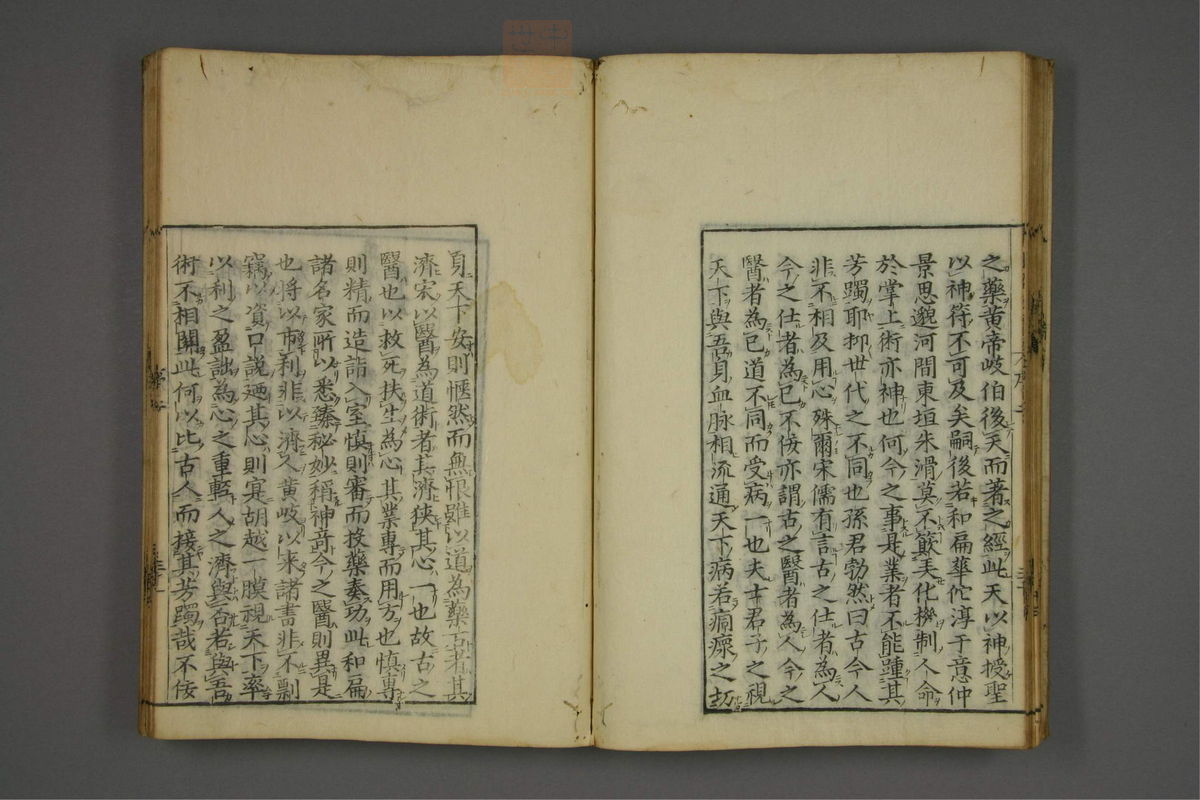 之藥黃帝岐伯後天而著之經此天以神授聖
以神符不可及矣嗣後若和扁華佗淳于意仲
景思邈河間東垣朱滑莫不簸弄化機制人命
於掌上術亦神也何今之事是業者不能踵其
芳躅耶抑世代之不同也孫君勃然曰古今人
非不相及用心殊爾宋儒有言古之仕者為人
今之仕者為己不佞亦謂古之醫者為人今之
醫者為己道不同而受病一也夫士君子之視
天下與吾身血脉相流通天下病若痌瘝之切
身天下安則愜然而無恨雖以道為藥石者其
濟宋以醫為道術者其濟狹其心一也故古之
醫也以救死扶生為心其業專而用方也慎專
則精而造詣入室慎則審而投藥奏功此和扁
諸名家所以悉臻秘妙稱神奇今之醫則異是
也將以市利非以濟人黃岐以來諸書非不剽
竊以資口說廼其心則寔胡越一膜視天下率
以利之盈詘為心之重輕人之濟與否若與吾
術不相關此何以比古人而接其芳躅哉不佞